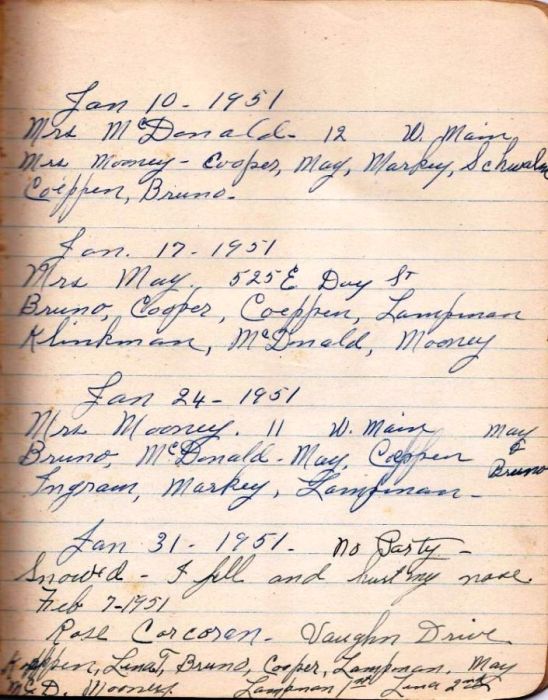 Jan 10 - 1951
Mrs McDonald - 12 W. Main
Mrs Mooney - Cooper, May, Markey, Schwalm
Coeppen, Bruno.
Jan. 17 - 1951
Mrs May. 525 E Day St
Bruno, Cooper, Coeppen, Lampman
Klinkman, McDonald, Mooney
Jan 24 - 1951
Mrs Mooney. 11 W. Main May
Bruno, McDonald - May, Coeppen & Bruno
Ingram, Markey, Lampman -
Jan 31 - 1951. No Party -
Snowed - I fell and hurt my nose.
Feb 7-1951
Rose Corcoran - Vaughn Drive
Koeppen, Bruno, Cooper, Lampman, May
McD. Mooney. Lampman 1st Luna 2nd